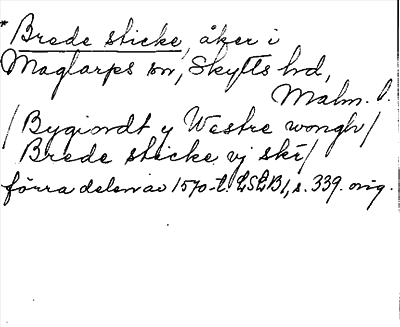 *Brede sticke, åker i
Maglarps sn, Skytts hd,
Malm. l.
/Bygiordt y Westre wongh/
Brede sticke vj skr/
förra delen av 1570-t. LSLB1, s. 339. orig.